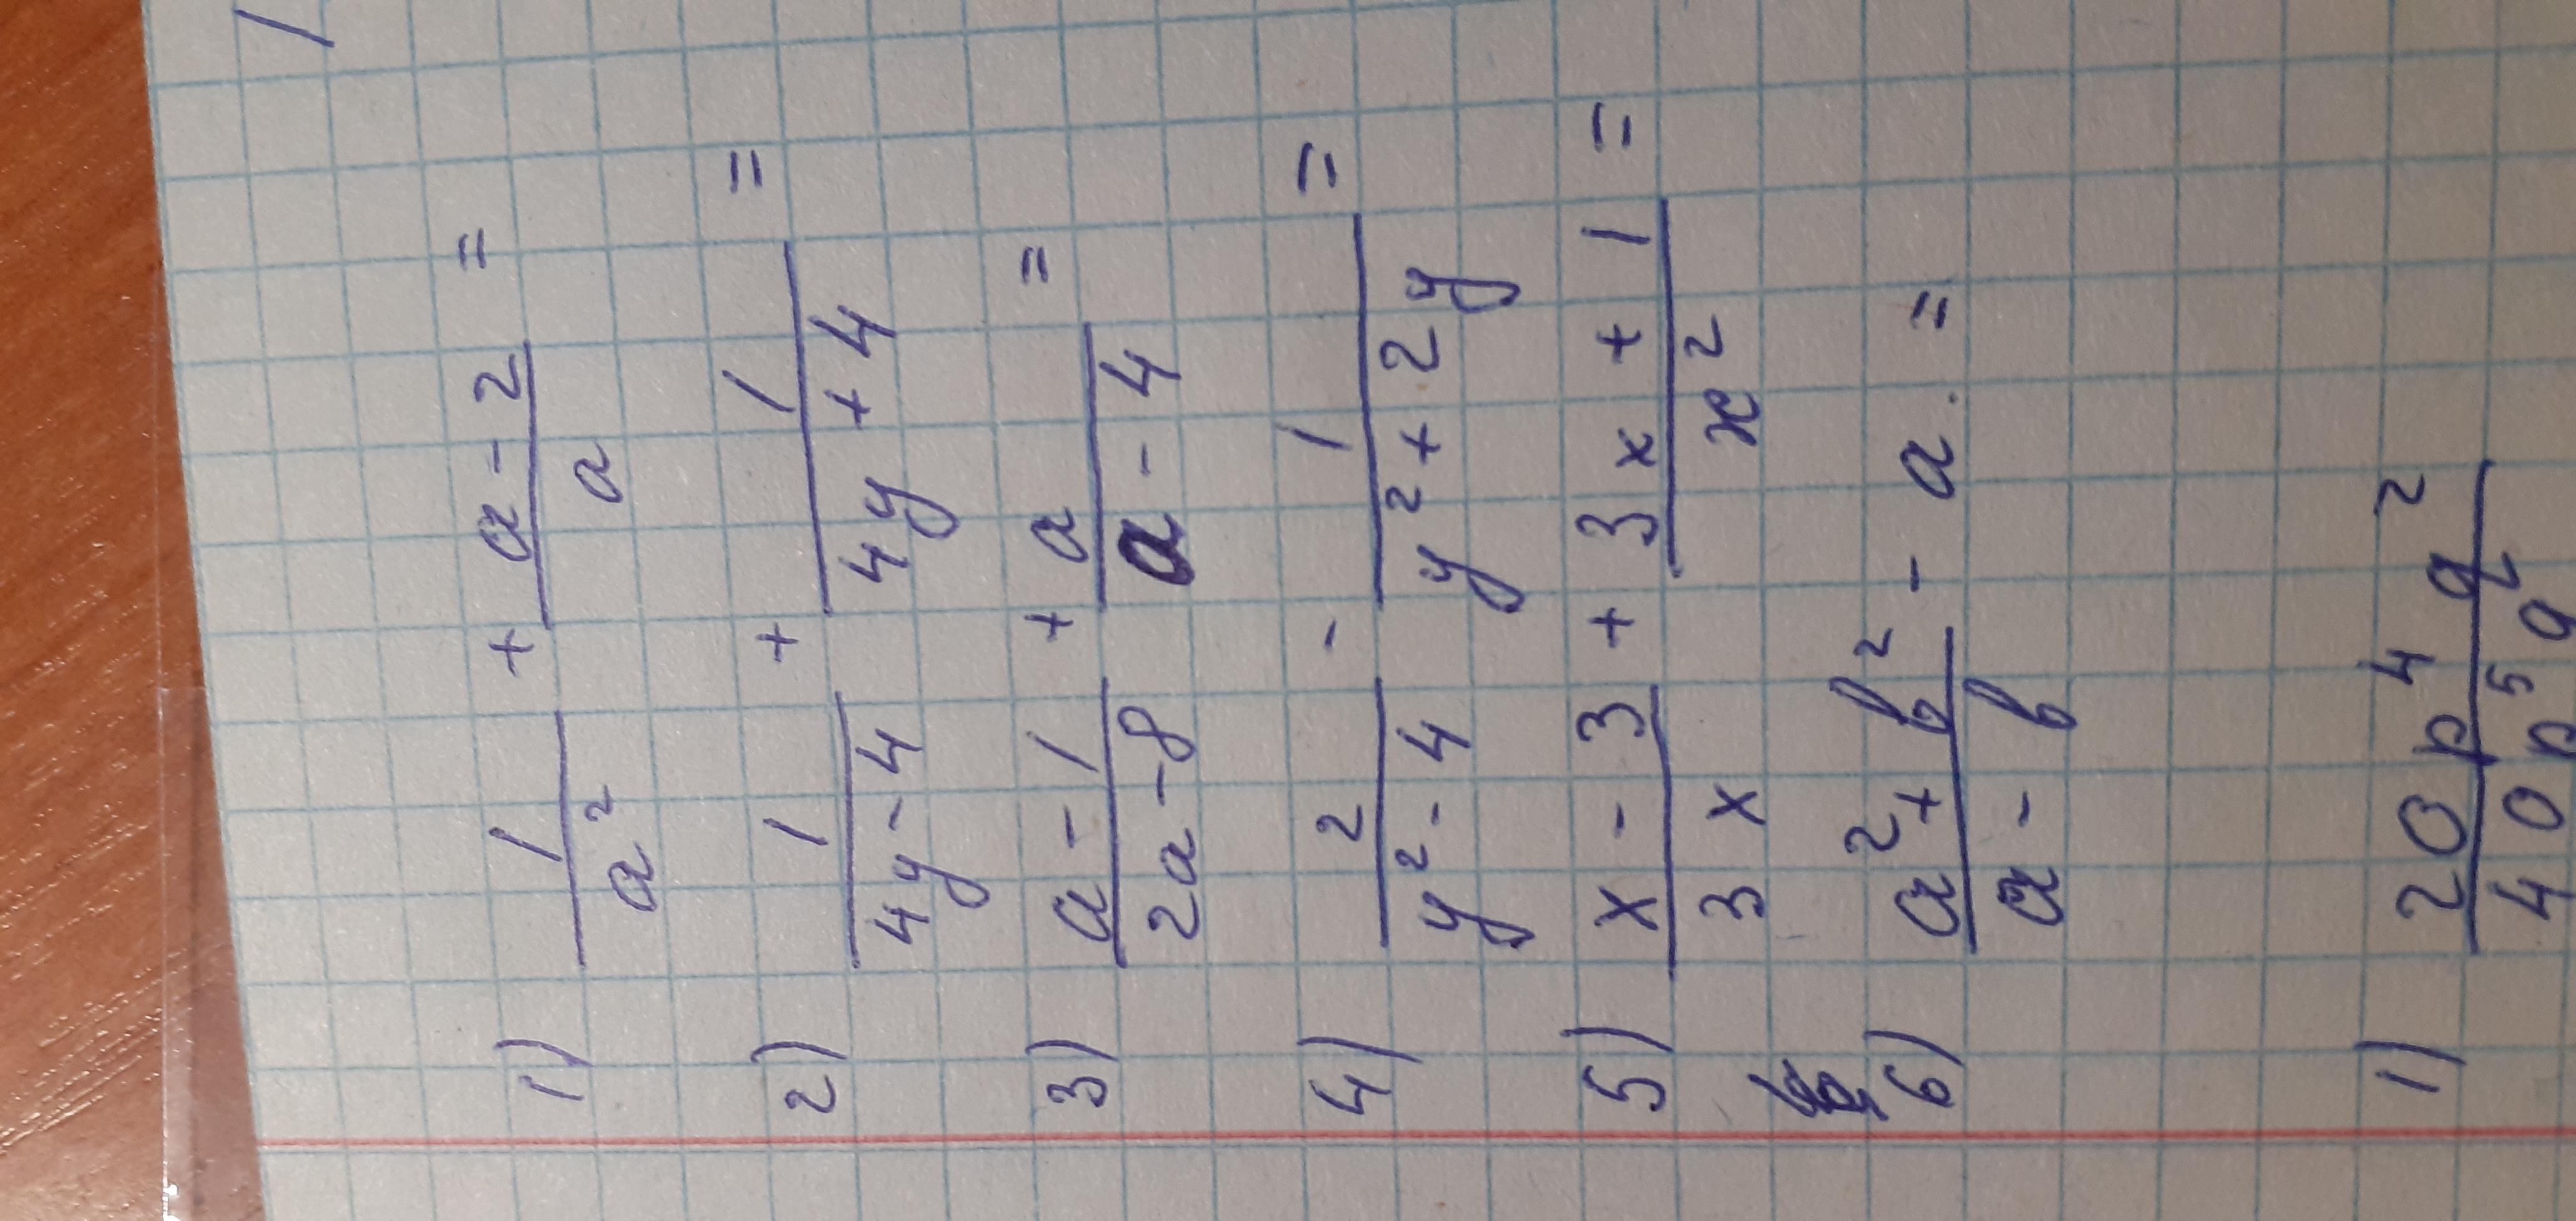 1) 1/a² + (a-2)/a =
2) 1/(4y-4) + 1/(4y+4) =
3) (a-1)/(2a-8) + a/(a-4) =
4) 2/(y²-4) - 1/(y²+2y) =
5) (x-3)/(3x) + (3x+1)/x² =
6) (a²+b²)/(a-b) - a. =
1) 20p⁴q²/40p⁵q